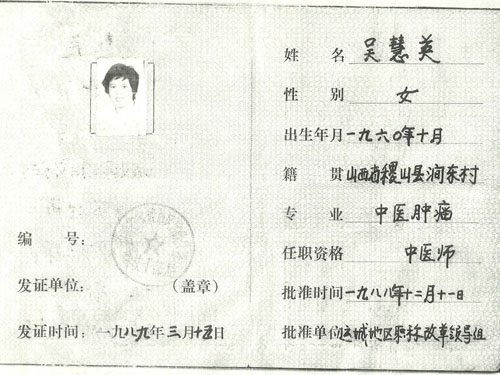 编 号:
发证单位: (盖章)
发证时间: 一九八九年三月十五日
姓 名 吴慧英
性 别 女
出生年月 一九六〇年十月
籍 贯 山西省稷山县涧东村
专 业 中医肿瘤
任职资格 中医师
批准时间 一九八八年十二月十一日
批准单位 运城地区职称改革领导组